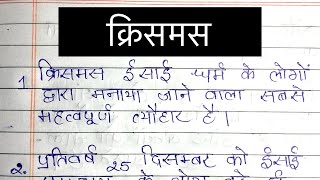 क्रिसमस
1. क्रिसमस ईसाई धर्म के लोगों
द्वारा मनाया जाने वाला सबसे
महत्वपूर्ण त्यौहार है।
2. प्रतिवर्ष 25 दिसम्बर को ईसाई
के लोग